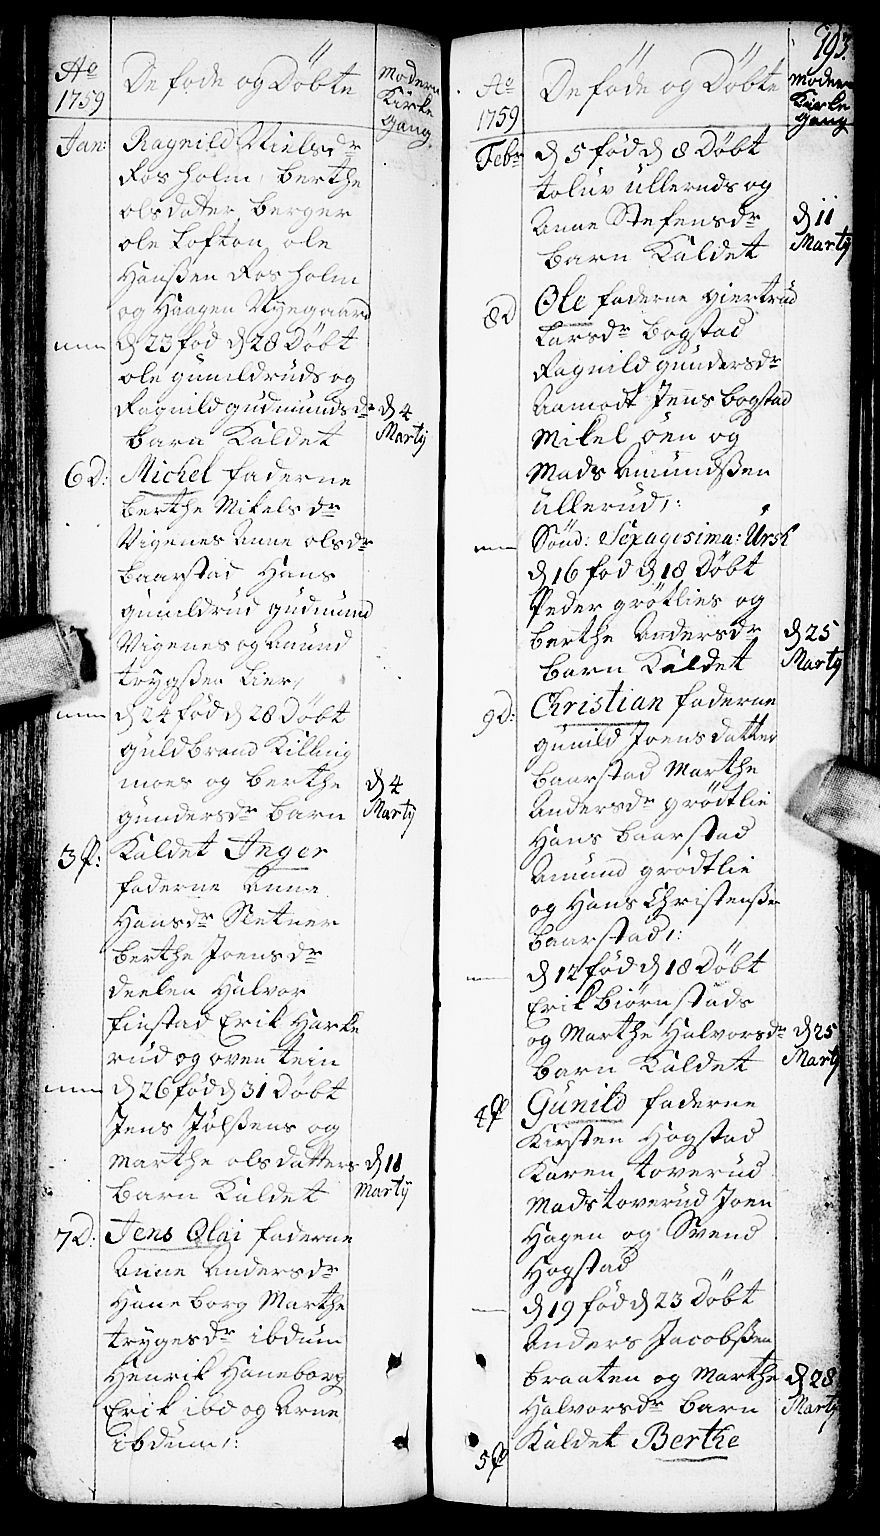 Ao
1759
De føde og Døbte
Moderns
Kirke
gang
Jan: Ragnild Nielsdr
Rosholm, Berthe
olsdatter berger
ole Lofton ole
Hanßen Rosholm
og Haagen Nyegaard
d 23 fød d 28 Døbt
ole gunildruds og
Ragnild gudmundsdr d 4
barn Kaldet Martÿ
6 D: Michel faderne
berthe Mikelsdr
Vigenes Anne olsdr
baarstad Hans
gunildrud gudmund
Vigenes og Amund
trygßen Lier,
d 24 fød d 28 Døbt
guldbrand Killing
moes og berthe d 4
gundersdr barn Martÿ
3 P: Kaldet Inger
faderne Anne
Hansdr Sletner
berthe Joensdr
deelen Halvor
finstad Erik Harke
rud og oven tein
d 26 fød d 31 Døbt
Jens Jølßens og
Marthe olsdatters d 11
barn Kaldet Martÿ
7 D: Jens Olai faderne
Anne Andersdr
Haneborg Marthe
trygesdr ibdum
Henrik Haneborg
Erik ibd og Arne
ibdum/:
193.
Ao
1759
De føde og Døbte
Modern
Kirke
gang
Febr d 5 fød d 8 Døbt
toluv ülleruds og
Anne Stefensdr d 11
barn Kaldet Martÿ
8 D Ole faderne giertrud
Larsdr bogstad
Ragnild gundersdr
Aamodt Jens bogstad
Mikel øen og
Mads Amundßen
üllerud/:
Sønd: Sexagesima: Ursk
d 16 fød d 18 Døbt
Peder grøtlies og
berthe Andersdr d 25
barn Kaldet Martÿ
9 D: Christian faderne
gunild Joensdatter
baarstad Marthe
Andersdr grødtlie
Hans baarstad
Amund grødtlie
og Hans Christenßen
baarstad/:
d 12 fød d 18 Døbt
Erik biørnstads
og Marthe Halvorsdr d 25
barn Kaldet Martÿ
4 P Gunild faderne
Kirsten Hogstad
Karen toverud
Mads toverud Joen
Hagen og Svend
Hogstad
d 19 fød d 23 Døbt
Anders Jacobßen
braaten og Marthe d 28
Halvorsdr barn Martÿ
5 P Kaldet Berthe